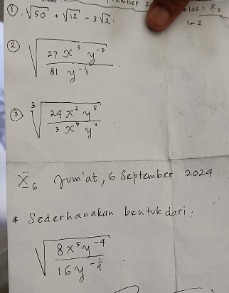 ① . √50 + √12 - 3√2 .
② √(27 x³ y⁻⁵ / 81 y^(-1/3))
③ ³√(24 x² y⁵ / 3 x⁵ y⁴)
X₆ Jum'at, 6 September 2024
* Sederhanakan bentuk dari :
√(8x⁵y⁻⁴ / 16y^(-1/4))